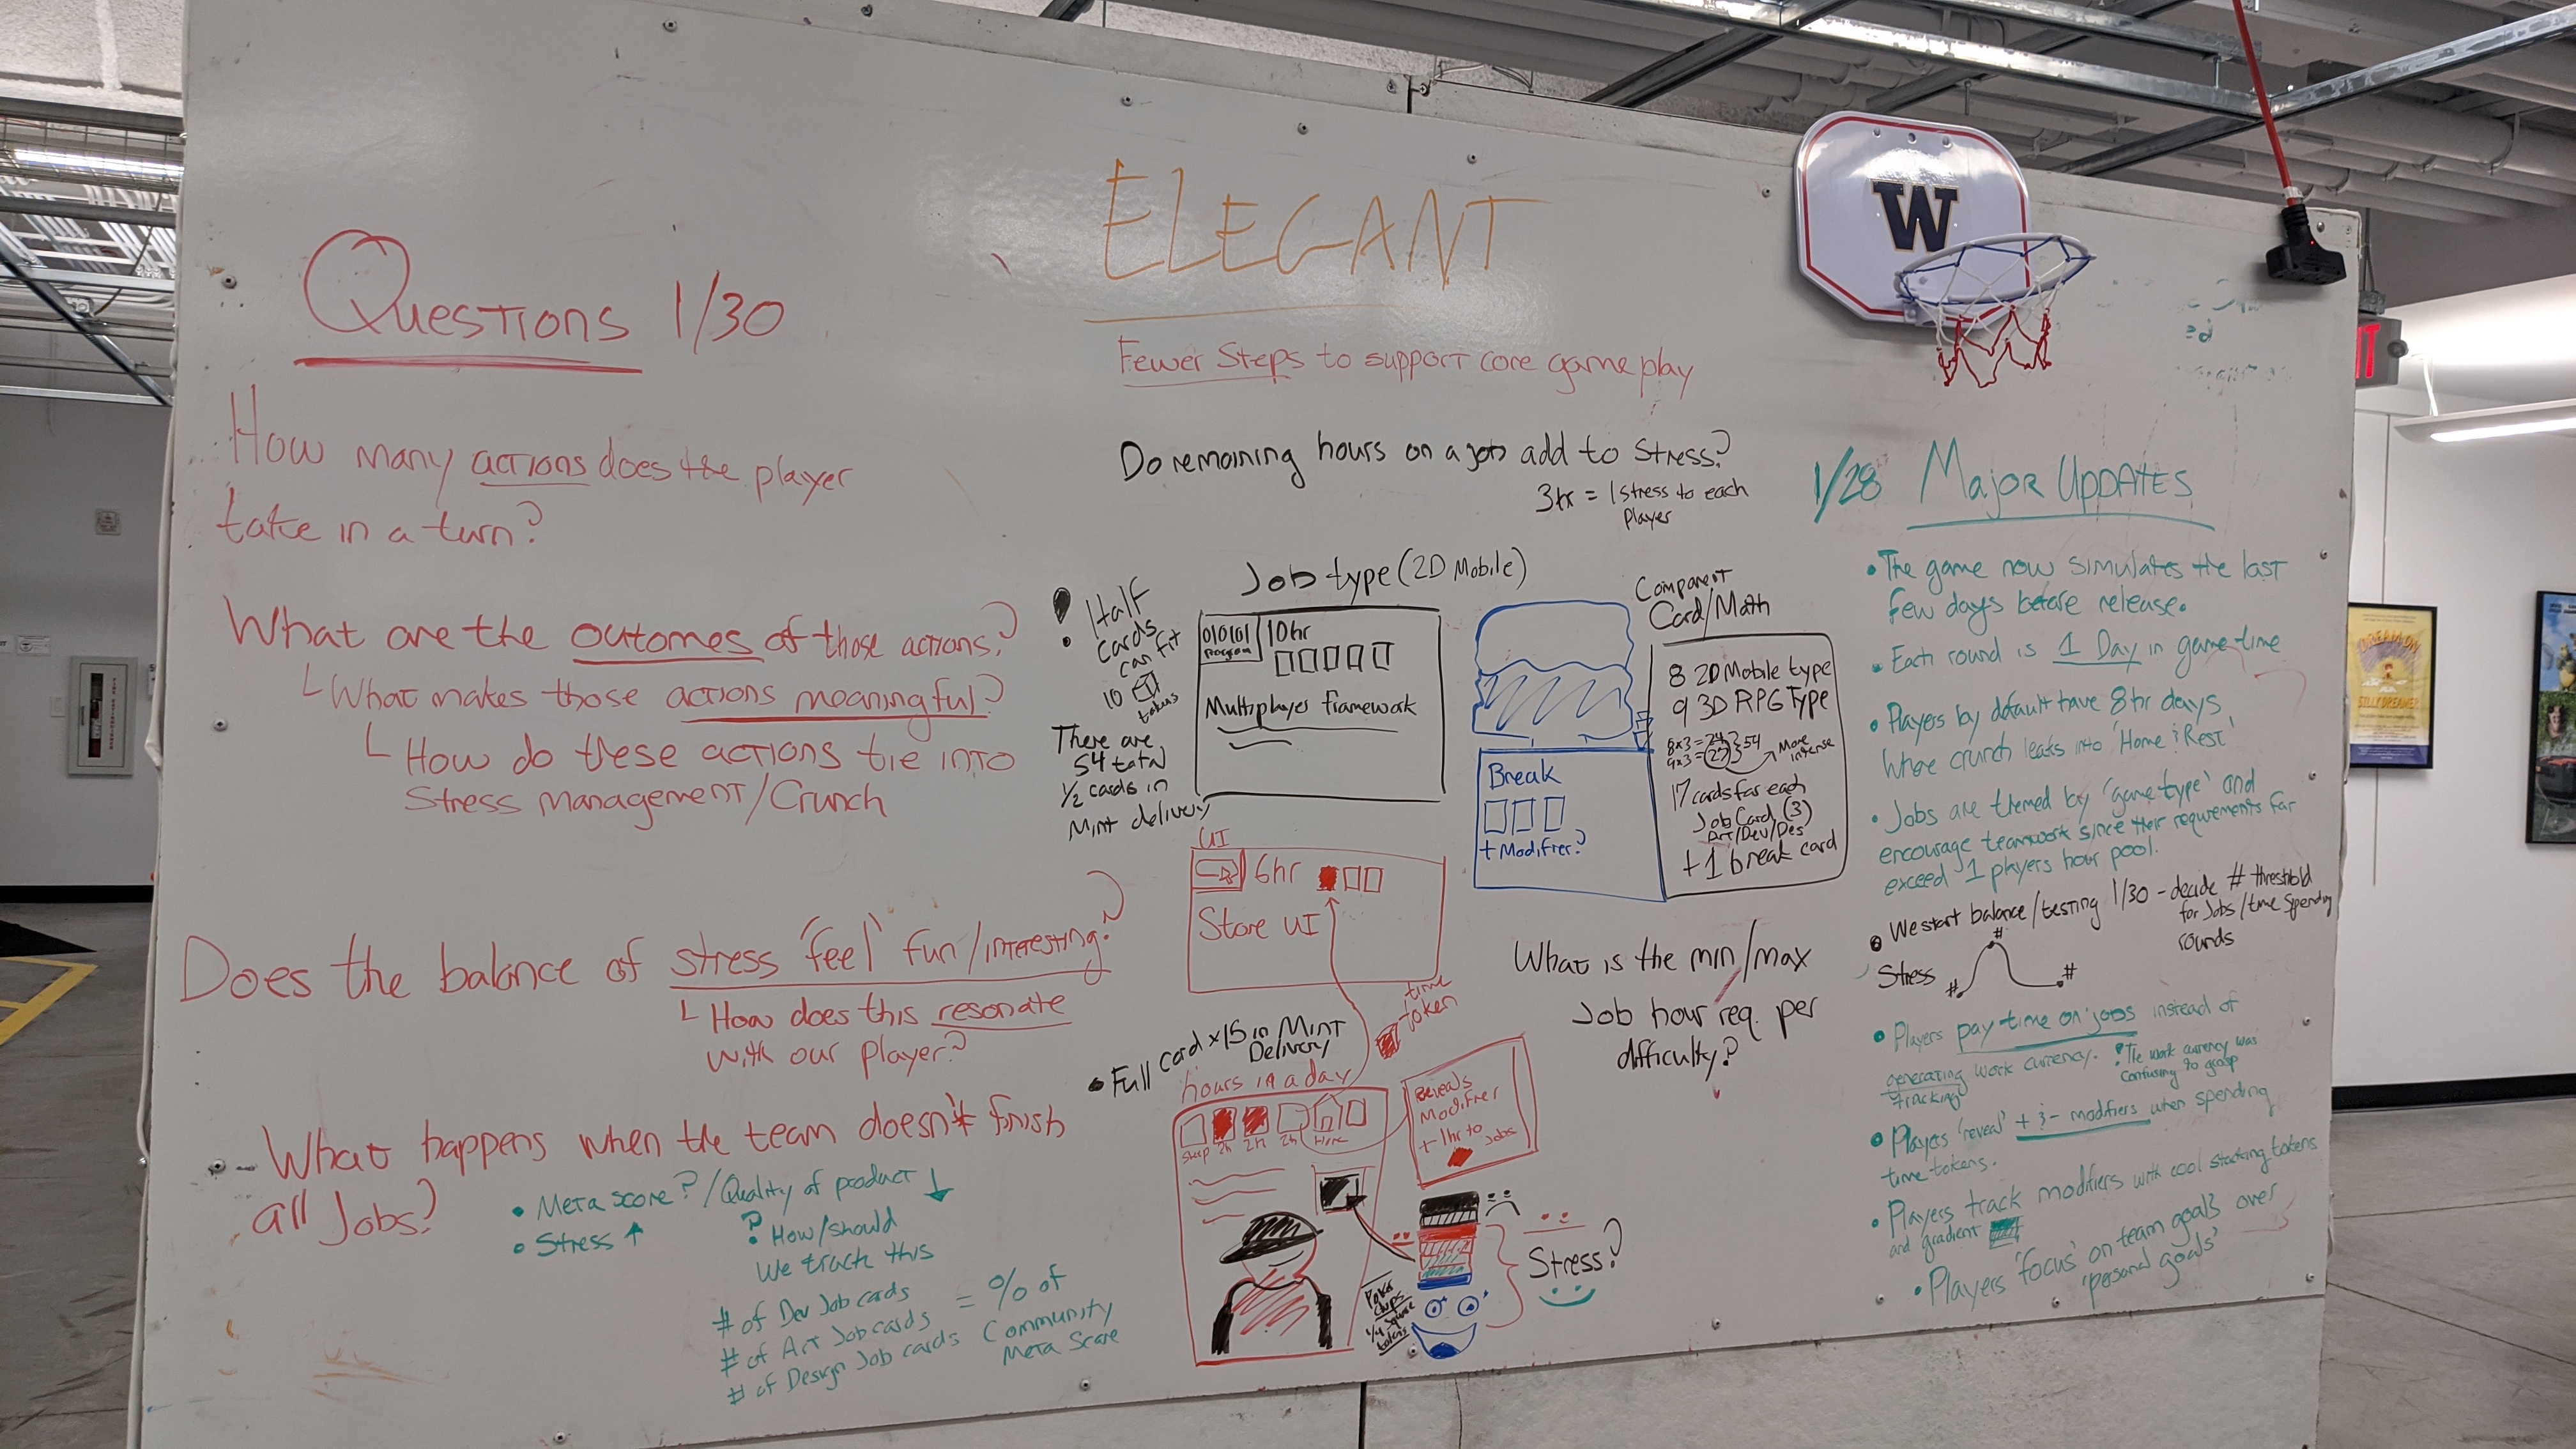 Questions 1/30
How many actions does the player
take in a turn?
What are the outcomes of those actions?
What makes those actions meaningful?
How do these actions tie into
Stress management/Crunch
Does the balance of stress 'feel' fun/interesting?
How does this resonate
with our player?
- What happens when the team doesn't finish
all Jobs?
• Meta score?/Quality of product ↓
• Stress ↑
? How/should
we track this
# of Dev Job cards
# of Art Job cards
# of Design Job cards
= % of
Community
Meta Score
ELEGANT
Fewer Steps to support core gameplay
Do remaining hours on a job add to Stress?
3hr = 1 stress to each
player
Job type (2D Mobile)
• Half
cards
can fit
10
tokens
There are
54 total
1/2 cards in
Mint delivery
010101
Program
10hr
Multiplayer framework
UI
6hr
Store UI
time
token
Break
+ Modifier?
Component
Card/Math
8 2D Mobile type
9 3D RPG Type
8x3 = 24
9x3 = 27
54
More
intense
17 cards for each
Job Card (3)
Art/Dev/Des
+ 1 break card
What is the min/max
Job hour req. per
difficulty?
• Full card x15 in Mint
Delivery
hours in a day
Sleep 2h 2h 2h Home
Reveals
Modifier
+ 1hr to
Jobs
Poker
chips
1/4 square
tokens
Stress?
W
1/28 Major Updates
• The game now simulates the last
few days before release.
• Each round is 1 Day in game time
• Players by default have 8hr days
Where crunch leaks into 'Home & Rest'
• Jobs are themed by 'game type' and
encourage teamwork since their requirements far
exceed 1 players hour pool.
• We start balance/testing 1/30 - decide # threshold
for Jobs/time spending
rounds
Stress # # #
• Players pay time on jobs instead of
generating work currency.
tracking
• The work currency was
confusing to grasp
• Players 'reveal' + & - modifiers when spending
time tokens.
• Players track modifiers with cool stacking tokens
and gradient
• Players 'focus' on team goals over
'personal goals'
DREAM ON
SILLY DREAMER